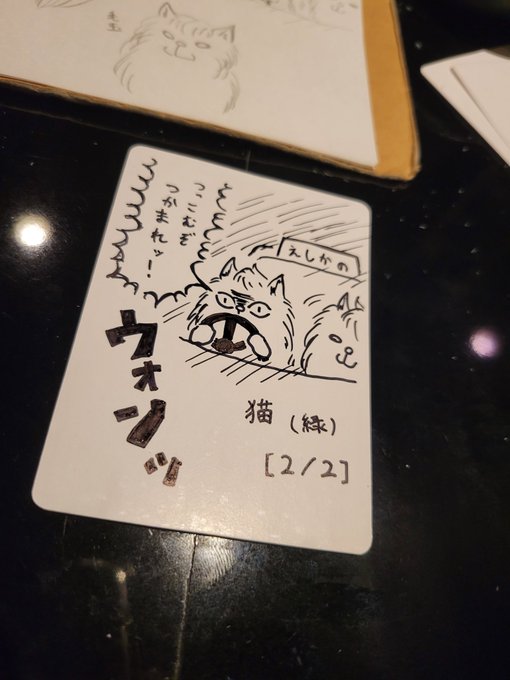 毛玉
つっこむぞ
つかまれッ!
えしかの
ウォンッ
猫(緑)
[2/2]